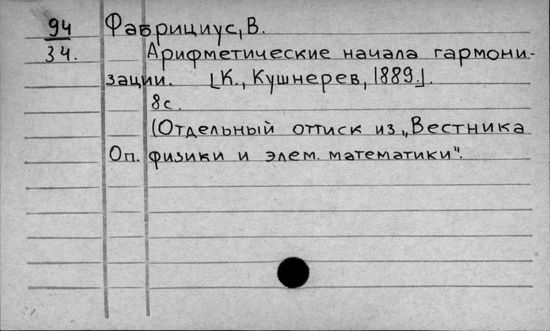 94 Фабрициус, В.
34. Арифметические начала гармони-
зации. [К., Кушнерев, 1889.].
8с.
(Отдельный оттиск из „Вестника
Оп. физики и элем. математики".